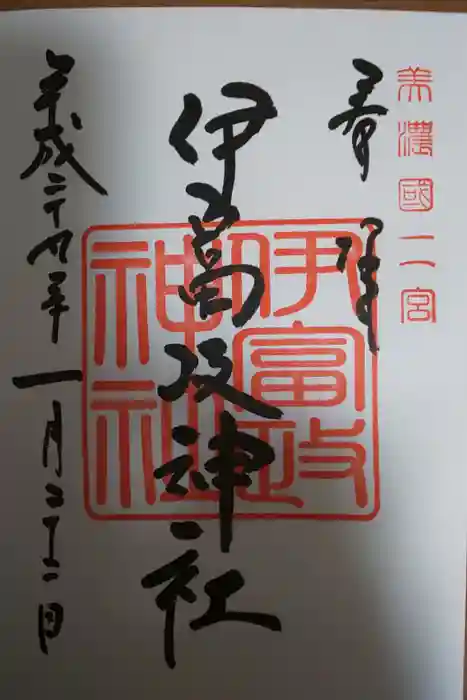 美濃國二宮
奉拝
伊富岐神社
伊富岐神社
平成二十九年一月二十二日